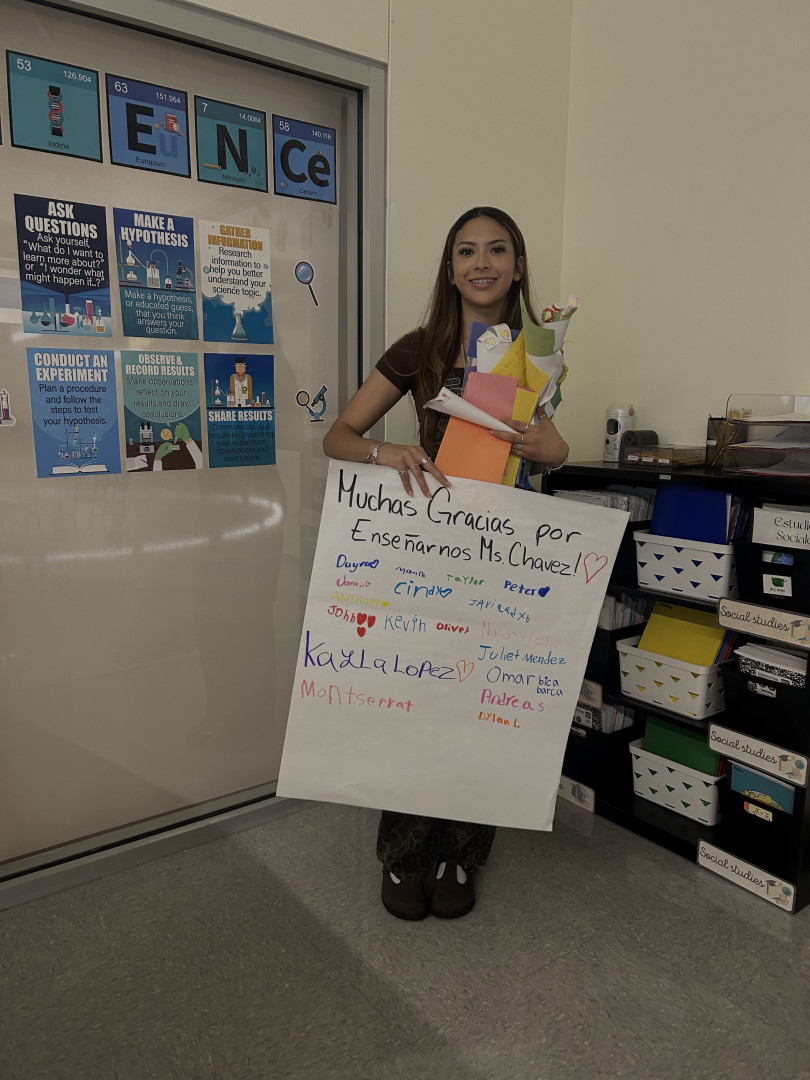 53 126.904
Iodine
63 151.964
Eu
Europium
7 14.0064
N
Nitrogen
58 140.116
Ce
Cerium
ASK
QUESTIONS
Ask yourself,
"What do I want to
learn more about?"
or "I wonder what
might happen if..?"
MAKE A
HYPOTHESIS
Make a hypothesis,
or educated guess,
that you think
answers your
question.
GATHER
INFORMATION
Research
information to
help you better
understand your
science topic.
CONDUCT AN
EXPERIMENT
Plan a procedure
and follow the
steps to test
your hypothesis.
OBSERVE &
RECORD RESULTS
Make observations,
reflect on your
results, and draw
conclusions.
SHARE RESULTS
Communicate your
results by presenting
your experiment,
observations and
conclusions.
Muchas Gracias por
Enseñarnos Ms. Chavez!
Dayra Taylor Peter
Cindy
ANTHONY
John Kevin Oliver
Juliet Mendez
Kayla Lopez Omar bica
barca
Montserrat Andreas
Dylan L
Estudi
Sociale
Social studies
Social studies
Social studies